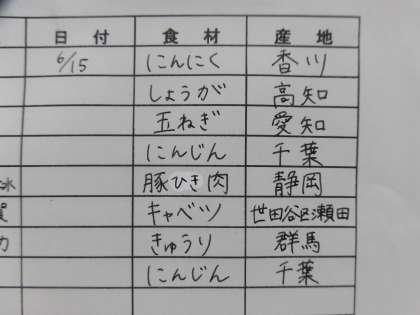 日付 食材 産地
6/15 にんにく 香川
しょうが 高知
玉ねぎ 愛知
にんじん 千葉
豚ひき肉 静岡
キャベツ 世田谷区瀬田
きゅうり 群馬
にんじん 千葉